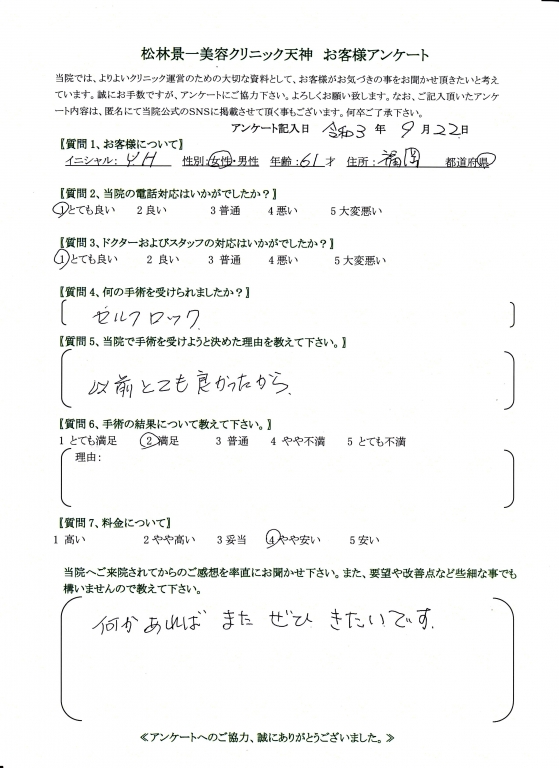 松林景一美容クリニック天神 お客様アンケート
当院では、よりよいクリニック運営のための大切な資料として、お客様がお気づきの事をお聞かせ頂きたいと考え
ています。誠にお手数ですが、アンケートにご協力下さい。よろしくお願い致します。なお、ご記入頂いたアンケ
ート内容は、匿名にて当院公式のSNSに掲載させて頂く事もございます。何卒ご了承下さい。
アンケート記入日 令和3 年 9 月 22 日
【質問1、お客様について】
イニシャル: YH 性別:女性・男性 年齢:61才 住所: 福岡 都道府県
【質問2、当院の電話対応はいかがでしたか?】
1とても良い 2良い 3普通 4悪い 5大変悪い
【質問3、ドクターおよびスタッフの対応はいかがでしたか?】
1とても良い 2 良い 3 普通 4悪い 5大変悪い
【質問4、何の手術を受けられましたか?】
セルフロック
【質問5、当院で手術を受けようと決めた理由を教えて下さい。】
以前とても良かったから、
【質問6、手術の結果について教えて下さい。】
1 とても満足 2 満足 3 普通 4 やや不満 5 とても不満
理由:
【質問7、料金について】
1 高い 2やや高い 3妥当 4やや安い 5安い
当院へご来院されてからのご感想を率直にお聞かせ下さい。また、要望や改善点など些細な事でも
構いませんので教えて下さい。
何かあれば また ぜひ きたいです。
≪アンケートへのご協力、誠にありがとうございました。≫